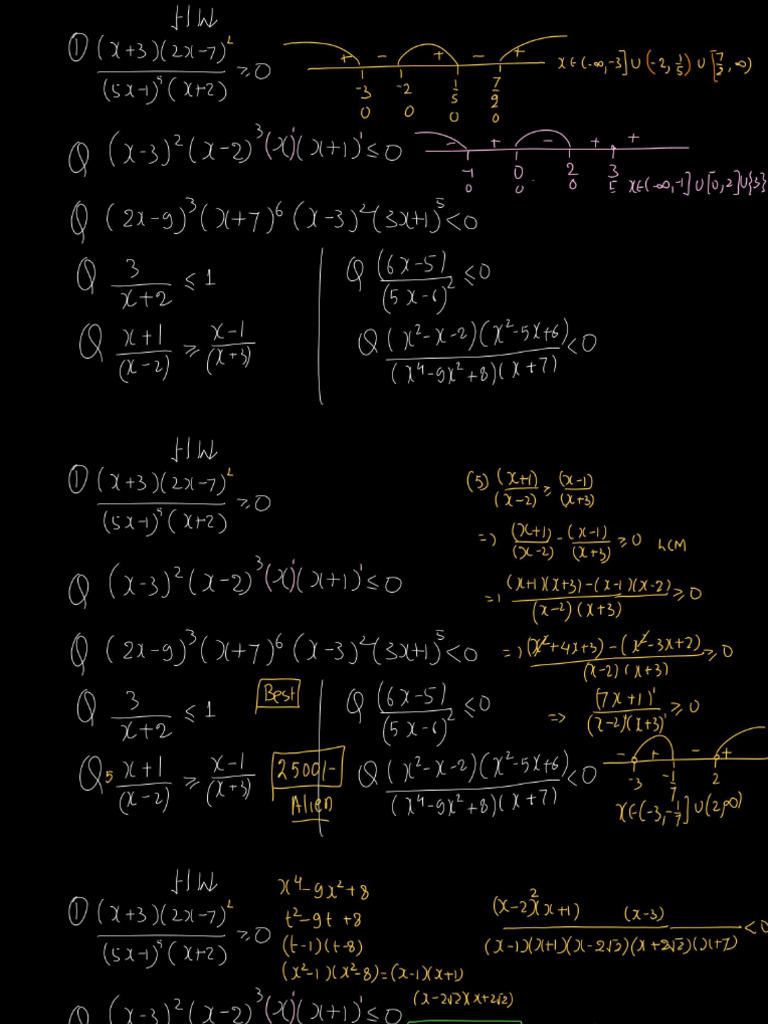 HW
① (x+3)(2x-7)² / (5x-1)⁵(x+2) ≥ 0
+ - + - +
-3 -2 1/5 7/2
0 0 0 0
x∈(-∞,-3]∪(-2,1/5)∪[7/2,∞)
Q (x-3)²(x-2)³(x)¹(x+1)¹ ≤ 0
- + - + +
-1 0 2 3
0 0 0 5
x∈(-∞,-1]∪[0,2]∪{3}
Q (2x-9)³(x+7)⁶(x-3)²(3x+1)⁵ < 0
Q 3/(x+2) ≤ 1
Q (6x-5)/(5x-6)² ≤ 0
Q (x+1)/(x-2) ≥ (x-1)/(x+3)
Q (x²-x-2)(x²-5x+6) / (x⁴-9x²+8)(x+7) < 0
HW
① (x+3)(2x-7)² / (5x-1)⁵(x+2) ≥ 0
Q (x-3)²(x-2)³(x)¹(x+1)¹ ≤ 0
Q (2x-9)³(x+7)⁶(x-3)²(3x+1)⁵ < 0
Q 3/(x+2) ≤ 1
Best
Q (6x-5)/(5x-6)² ≤ 0
Q5 (x+1)/(x-2) ≥ (x-1)/(x+3)
2500/-
Alien
Q (x²-x-2)(x²-5x+6) / (x⁴-9x²+8)(x+7) < 0
(5) (x+1)/(x-2) ≥ (x-1)/(x+3)
=) (x+1)/(x-2) - (x-1)/(x+3) ≥ 0 LCM
=) (x+1)(x+3)-(x-1)(x-2) / (x-2)(x+3) ≥ 0
=) (x²+4x+3)-(x²-3x+2) / (x-2)(x+3) ≥ 0
=> (7x+1)¹ / (x-2)¹(x+3)¹ ≥ 0
- + - +
-3 -1/7 2
x∈(-3,-1/7]∪(2,∞)
HW
① (x+3)(2x-7)² / (5x-1)⁵(x+2) ≥ 0
x⁴-9x²+8
t²-9t+8
(t-1)(t-8)
(x²-1)(x²-8)=(x-1)(x+1)
(x-2√2)(x+2√2)
(x-2)²(x+1) (x-3) / (x-1)(x+1)(x-2√2)(x+2√2)(x+7) < 0
Q (x-3)²(x-2)³(x)¹(x+1)¹ ≤ 0